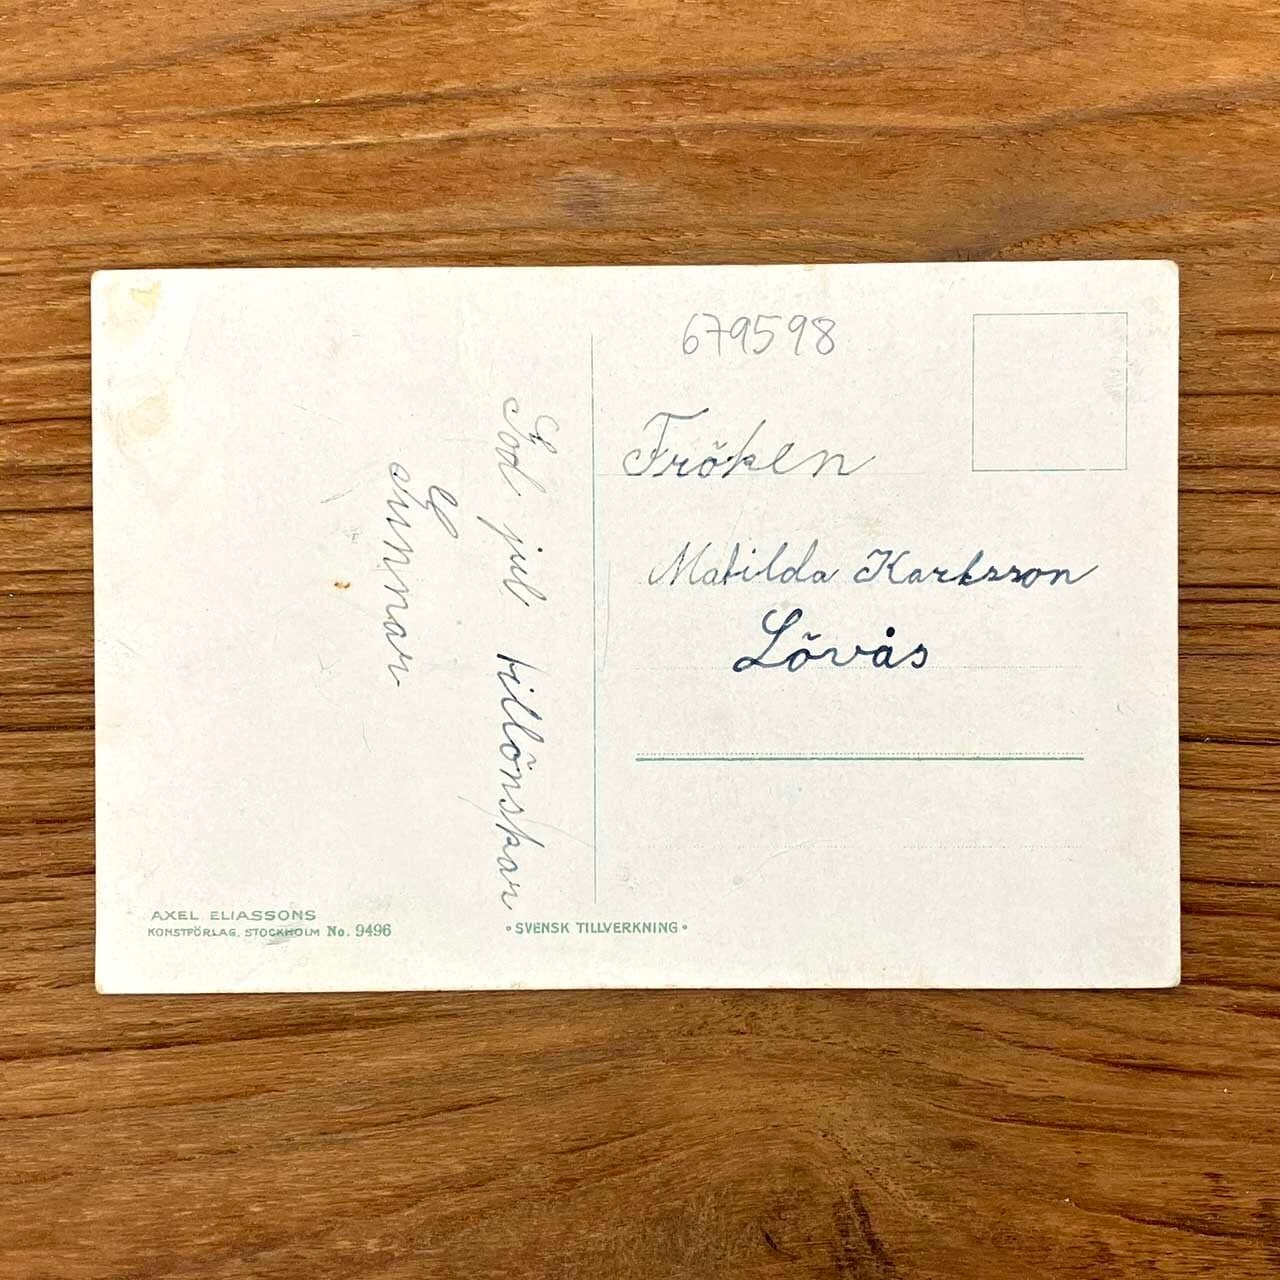 679598
Fröken
Matilda Karlsson
Lövås
God jul, tillönskar
Gunnar
AXEL ELIASSONS
KONSTFÖRLAG, STOCKHOLM No. 9496
• SVENSK TILLVERKNING •